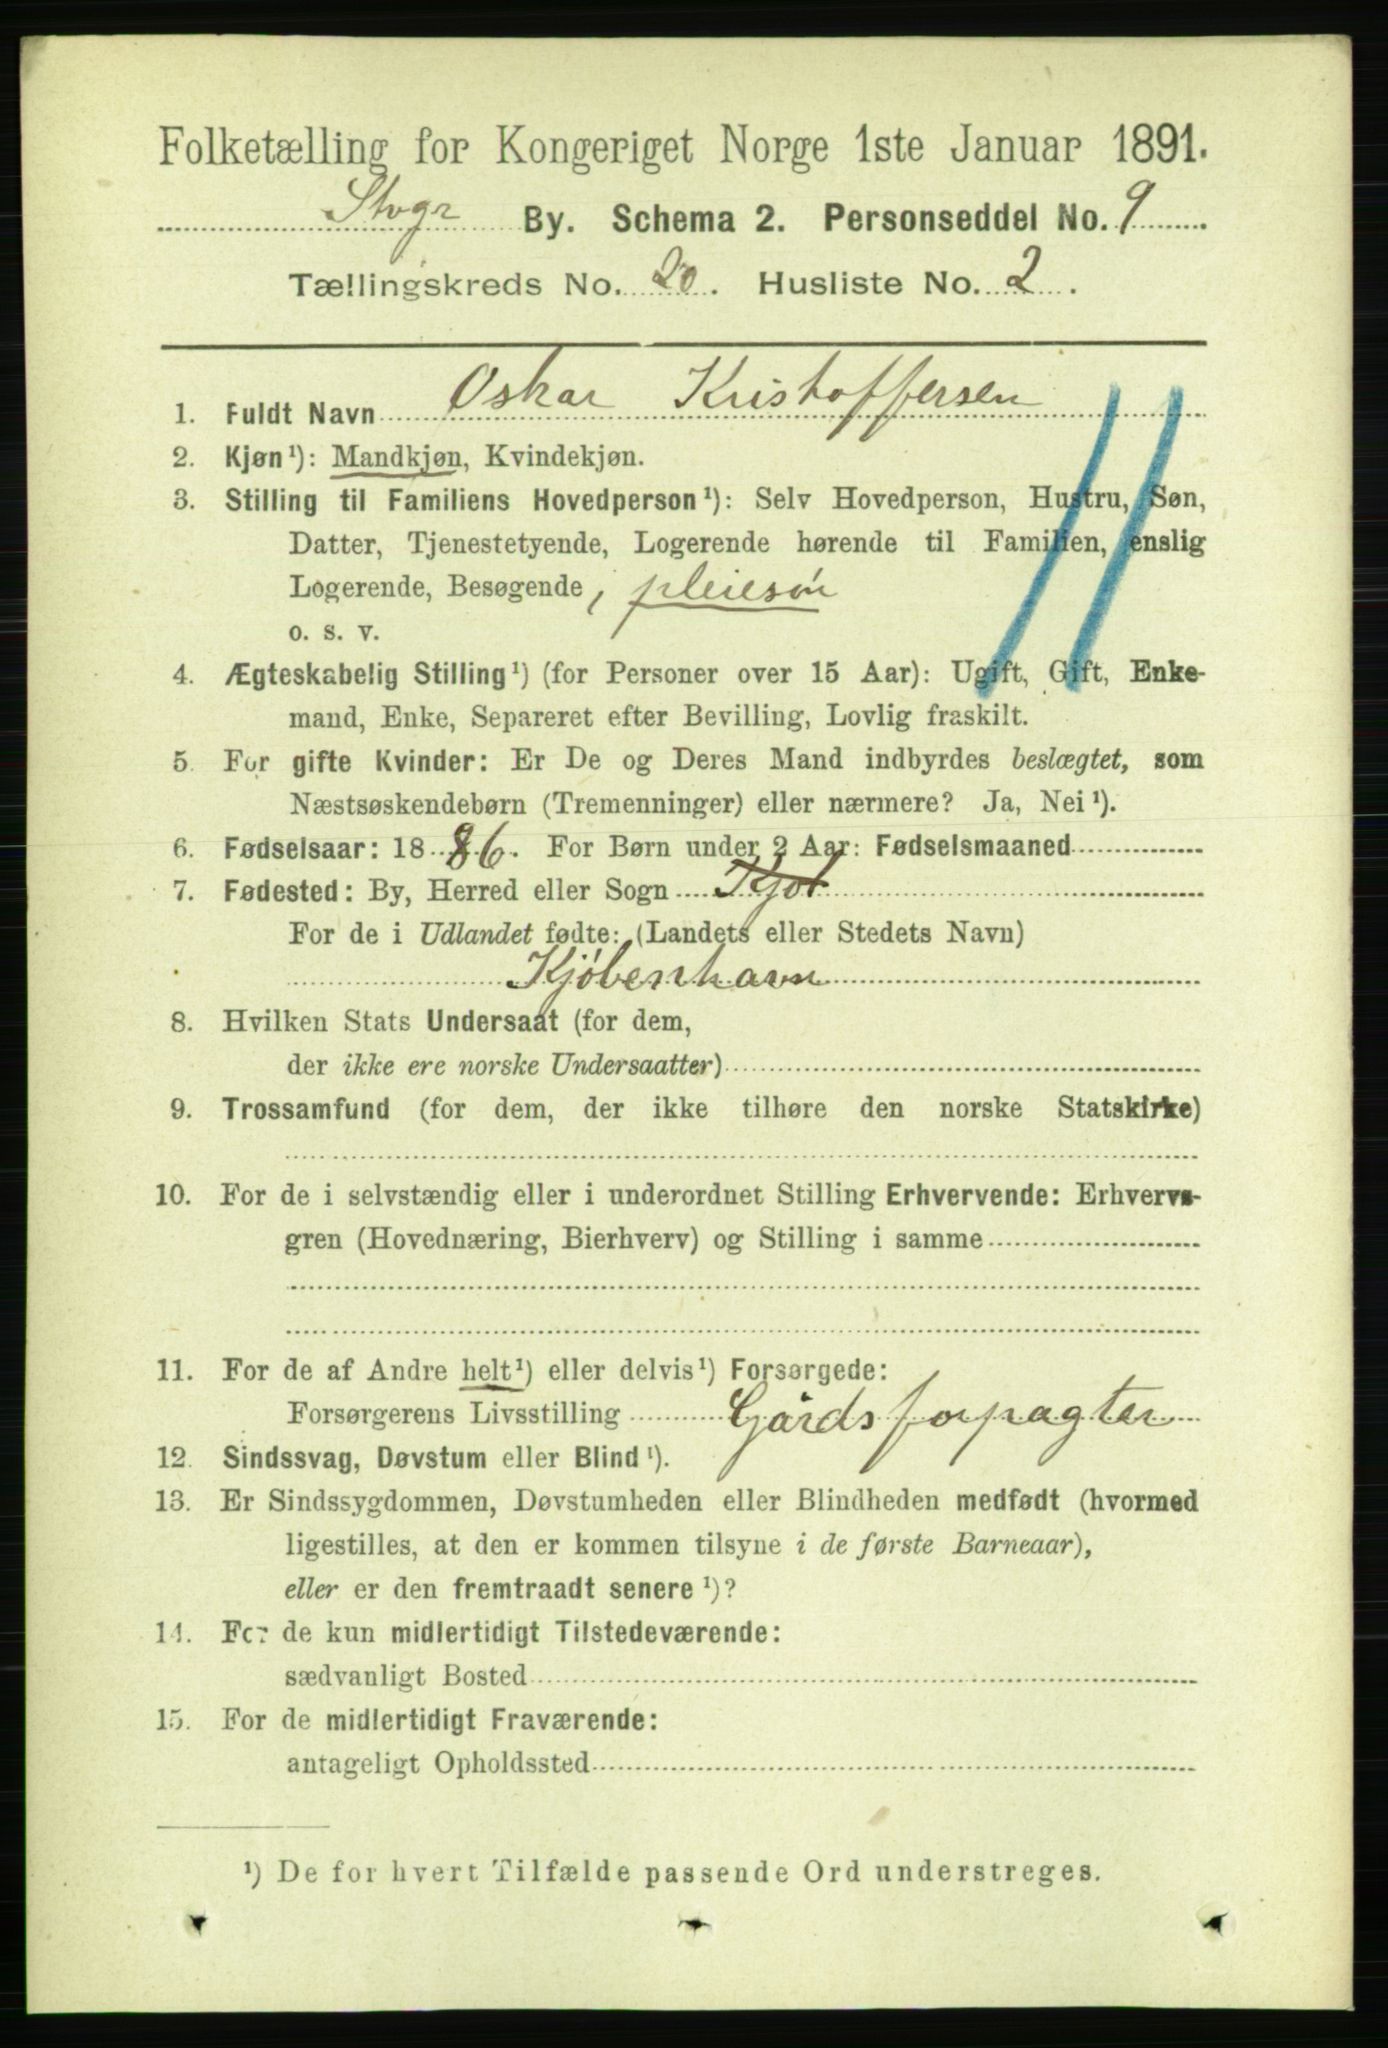 Folketælling for Kongeriget Norge 1ste Januar 1891.
Stvgr By. Schema 2. Personseddel No. 9
Tællingskreds No. 20. Husliste No. 2.
1. Fuldt Navn Oskar Kristoffersen
2. Kjøn¹): Mandkjøn, Kvindekjøn.
3. Stilling til Familiens Hovedperson¹): Selv Hovedperson, Hustru, Søn,
Datter, Tjenestetyende, Logerende hørende til Familien, enslig
Logerende, Besøgende, pleiesøn
o. s. v.
4. Ægteskabelig Stilling¹) (for Personer over 15 Aar): Ugift, Gift, Enke-
mand, Enke, Separeret efter Bevilling, Lovlig fraskilt.
5. For gifte Kvinder: Er De og Deres Mand indbyrdes beslægtet, som
Næstsøskendebørn (Tremenninger) eller nærmere? Ja, Nei¹).
6. Fødselsaar: 1886. For Børn under 2 Aar: Fødselsmaaned
7. Fødested: By, Herred eller Sogn Kjøb
For de i Udlandet fødte: (Landets eller Stedets Navn)
Kjøbenhavn
8. Hvilken Stats Undersaat (for dem,
der ikke ere norske Undersaatter)
9. Trossamfund (for dem, der ikke tilhøre den norske Statskirke)
10. For de i selvstændig eller i underordnet Stilling Erhvervende: Erhvervs-
gren (Hovednæring, Bierhverv) og Stilling i samme
11. For de af Andre helt¹) eller delvis¹) Forsørgede:
Forsørgerens Livsstilling Gårdsforpagter
12. Sindssvag, Døvstum eller Blind¹).
13. Er Sindssygdommen, Døvstumheden eller Blindheden medfødt (hvormed
ligestilles, at den er kommen tilsyne i de første Barneaar),
eller er den fremtraadt senere¹)?
14. For de kun midlertidigt Tilstedeværende:
sædvanligt Bosted
15. For de midlertidigt Fraværende:
antageligt Opholdssted
¹) De for hvert Tilfælde passende Ord understreges.